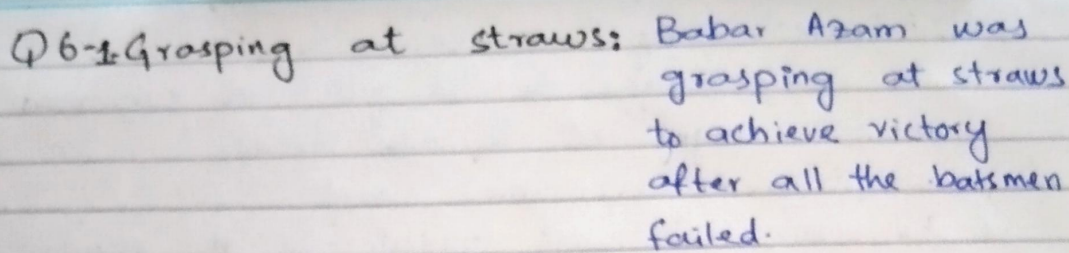 Q6-1. Grasping at straws: Babar Azam was
grasping at straws
to achieve victory
after all the batsmen
failed.